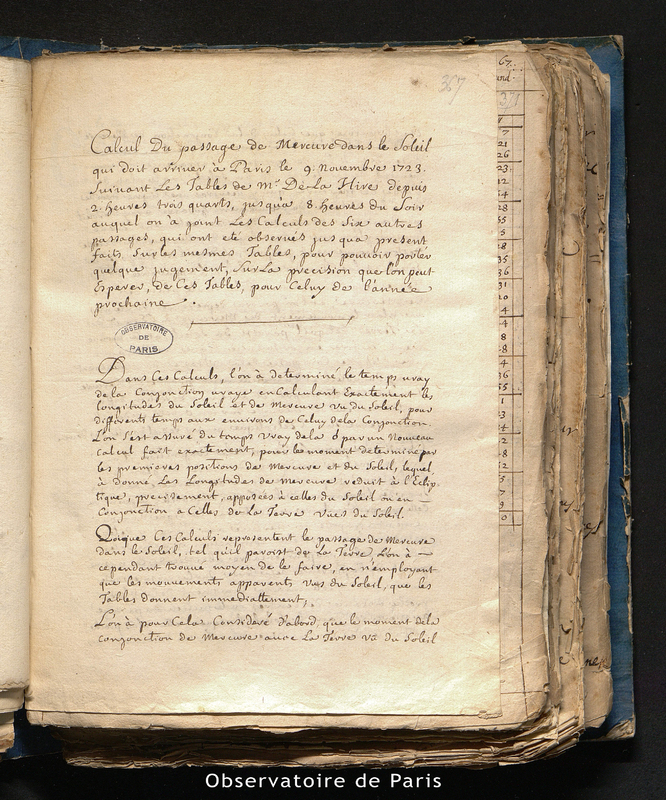 367
Calcul Du passage de Mercure dans le Soleil
qui doit arriver à Paris le 9. Novembre 1723.
suivant Les Tables de Mr. De La Hire depuis
2. heures trois quarts, jusqua 8. heures du Soir
auquel on a joint Les Calculs des Six autres
passages, qui ont eté observés jusqua present
faits sur les mesmes Tables, pour pouvoir porter
quelque jugement, sur La precision que l'on peut
Esperer, de Ces Tables, pour Celuy de l'année
prochaine.
OBSERVATOIRE
DE
PARIS
Dans Ces Calculs, l'on à determiné le temps vray
de la Conjonction vraye en Calculant Exactement les
longitudes du Soleil et de Mercure vu du Soleil, pour
differents temps aux environs de Celuy de la Conjonction.
L'on s'est assuré du temps vray de la ☌ par un Nouveau
calcul fait exactement, pour le moment determiné par
les premieres positions de Mercure et du Soleil, lequel
à donné, Les Longitudes de Mercure reduit à l'Eclip-
tique, precisement, opposées à celles du Soleil ou en
Conjonction a Celles de La Terre vües du Soleil.
Qoique Ces Calculs representent le passage de Mercure
dans le Soleil, tel qu'il paroist de La Terre, L'on à
cependant trouvé moyen de le faire, en n'employant
que les mouvements apparents vus du Soleil, que les
Tables donnent immediattement,
L'on à pour Cela Consideré d'abord, que le moment de la
conjonction de Mercure avec La Terre vu du Soleil
67.
371
7
21
26
23
12
Observatoire de Paris